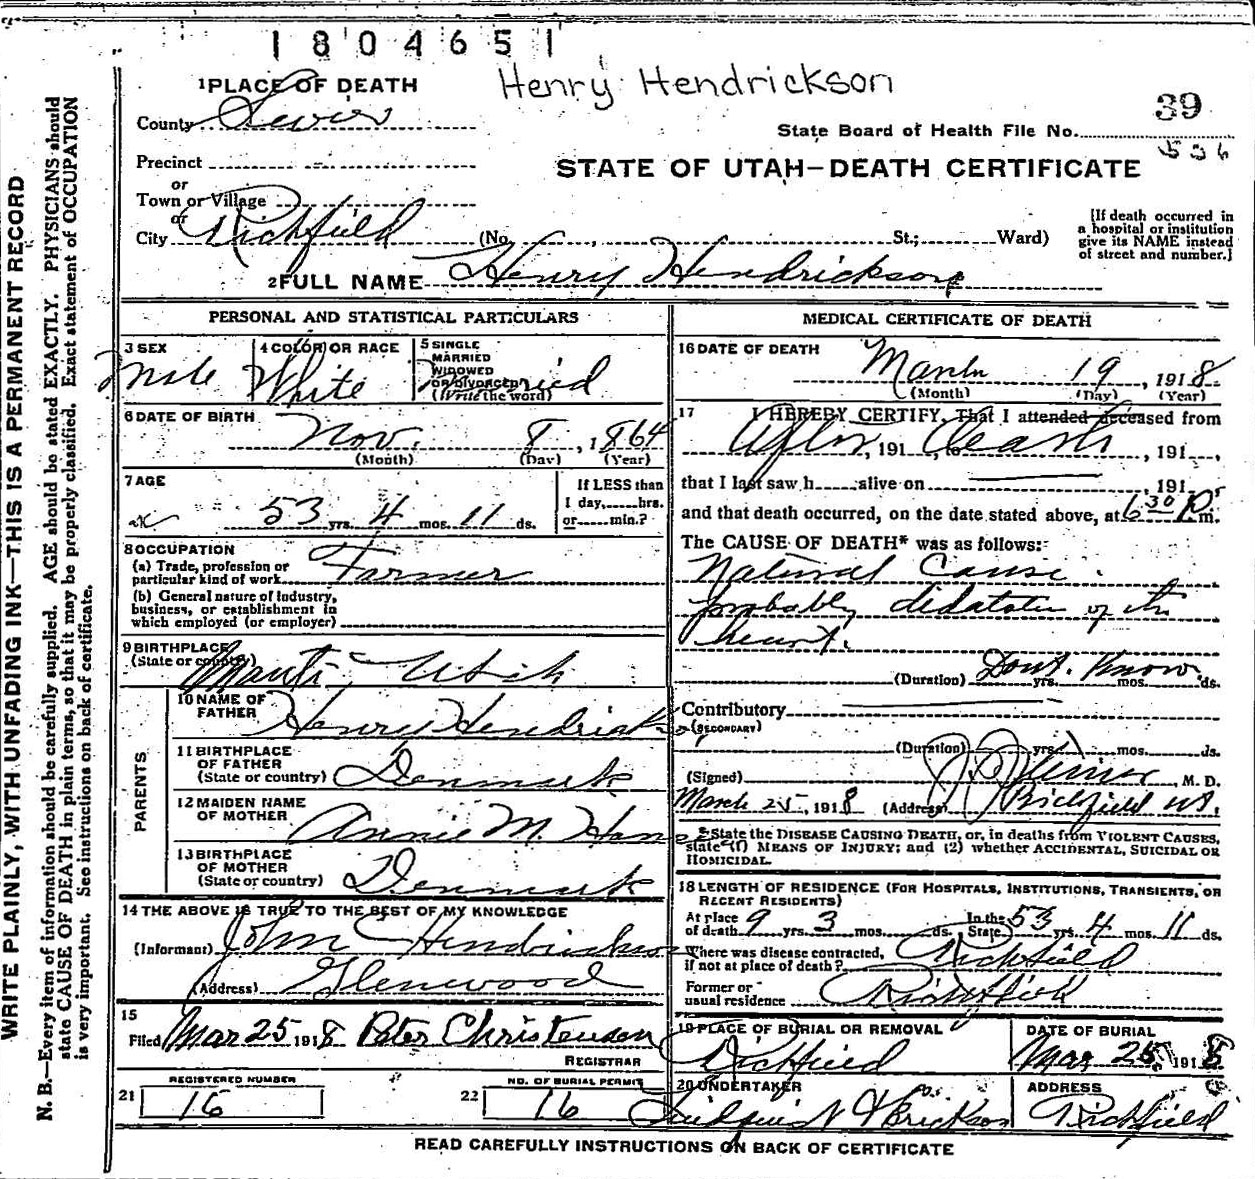 1804651
Henry Hendrickson
1 PLACE OF DEATH
County Sevier
39
State Board of Health File No.
536
Precinct
STATE OF UTAH—DEATH CERTIFICATE
or
Town or Village
or
City Richfield (No. , St.; Ward)
[If death occurred in
a hospital or institution
give its NAME instead
of street and number.]
2 FULL NAME Henry Hendrickson
PERSONAL AND STATISTICAL PARTICULARS
3 SEX Male
4 COLOR OR RACE White
5 SINGLE
MARRIED
WIDOWED
OR DIVORCED
(Write the word)
Married
6 DATE OF BIRTH
Nov. 8, 1864
(Month) (Day) (Year)
7 AGE
53 yrs. 4 mos. 11 ds.
If LESS than
1 day, hrs.
or min.?
8 OCCUPATION
(a) Trade, profession or
particular kind of work Farmer
(b) General nature of industry,
business, or establishment in
which employed (or employer)
9 BIRTHPLACE
(State or country) Manti Utah
PARENTS
10 NAME OF
FATHER Henry Hendrickson
11 BIRTHPLACE
OF FATHER
(State or country) Denmark
12 MAIDEN NAME
OF MOTHER Annie M. Hans
13 BIRTHPLACE
OF MOTHER
(State or country) Denmark
14 THE ABOVE IS TRUE TO THE BEST OF MY KNOWLEDGE
(Informant) John Hendrickson
(Address) Glenwood
15
Filed Mar 25 1918 Peter Christensen
REGISTRAR
REGISTERED NUMBER
21 16
NO. OF BURIAL PERMIT
22 16
MEDICAL CERTIFICATE OF DEATH
16 DATE OF DEATH
March 19, 1918
(Month) (Day) (Year)
17 I HEREBY CERTIFY, That I attended deceased from
After, 191 , to death, 191 ,
that I last saw h alive on , 191 ,
and that death occurred, on the date stated above, at 6 30 P. m.
The CAUSE OF DEATH* was as follows:
Natural Cause.
probably dilatation of the
heart.
(Duration) Dont Know yrs. mos. ds.
Contributory
(SECONDARY)
(Duration) yrs. mos. ds.
(Signed) M. D.
March 25, 1918 (Address) Richfield Ut.
*State the DISEASE CAUSING DEATH, or, in deaths from VIOLENT CAUSES,
state (1) MEANS OF INJURY; and (2) whether ACCIDENTAL, SUICIDAL OR
HOMICIDAL.
18 LENGTH OF RESIDENCE (FOR HOSPITALS, INSTITUTIONS, TRANSIENTS, OR
RECENT RESIDENTS)
At place
of death 9 yrs. 3 mos. ds. In the State 53 yrs. 4 mos. 11 ds.
Where was disease contracted,
if not at place of death? Richfield
Former or
usual residence Richfield
19 PLACE OF BURIAL OR REMOVAL
Richfield
DATE OF BURIAL
Mar 25, 1918
20 UNDERTAKER
& Erickson
ADDRESS
Richfield
READ CAREFULLY INSTRUCTIONS ON BACK OF CERTIFICATE
WRITE PLAINLY, WITH UNFADING INK—THIS IS A PERMANENT RECORD
N. B.—Every item of information should be carefully supplied. AGE should be stated EXACTLY. PHYSICIANS should
state CAUSE OF DEATH in plain terms, so that it may be properly classified. Exact statement of OCCUPATION
is very important. See instructions on back of certificate.